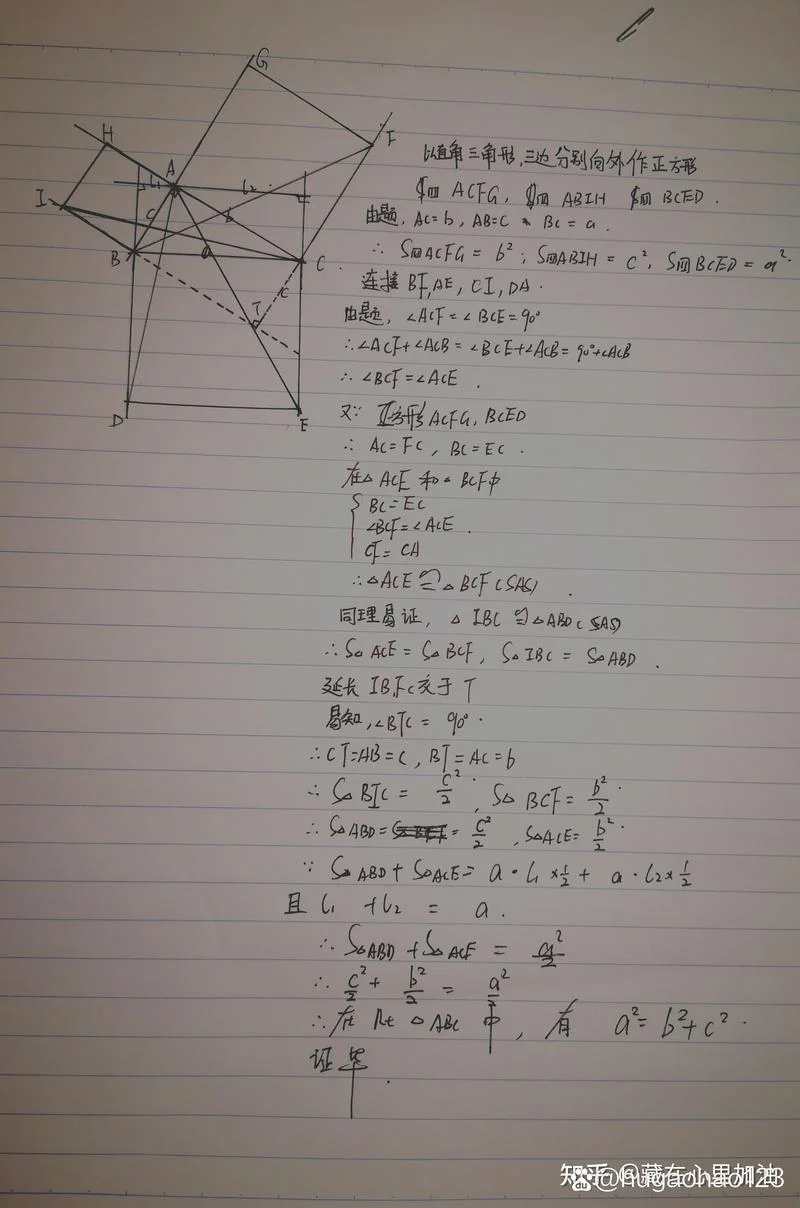 G
F
H
A
I
l₁
l₂
c
b
B
a
C
T
c
D
E
以直角三角形,三边分别向外作正方形
S四 ACFG, S四 ABIH S四 BCED.
由题, AC=b, AB=C, BC=a.
∴ S四ACFG = b²; S四ABIH = c², S四BCED = a².
连接 BF, AE, CI, DA.
由题, ∠ACF=∠BCE=90°
∴∠ACF+∠ACB=∠BCE+∠ACB=90°+∠ACB
∴ ∠BCF=∠ACE.
又∵ 正方形ACFG, BCED
∴ AC=FC, BC=EC.
在△ ACE 和△ BCF中
{ BC=EC
∠BCF=∠ACE.
CF=CA
∴△ACE≌△BCF(SAS).
同理易证, △ IBC ≌△ABD(SAS)
∴S△ ACE=S△BCF, S△ IBC = S△ABD.
延长 IB,FC交于 T
易知,∠BTC = 90°.
∴CT=AB=C, BT=AC=b
∴ S△ BIC = c²/2, S△ BCF= b²/2.
∴ S△ABD= = c²/2, S△ACE= b²/2.
∵ S△ABD+S△ACE= a·l₁×1/2+ a·l₂×1/2
且 l₁ +l₂ = a.
∴ S△ABD+S△ACE = a²/2
∴ c²/2+ b²/2 = a²/2
∴在 Rt △ABC 中, 有 a²=b²+c².
证毕.
知乎 @藏在心里加油
du @hugaohao123